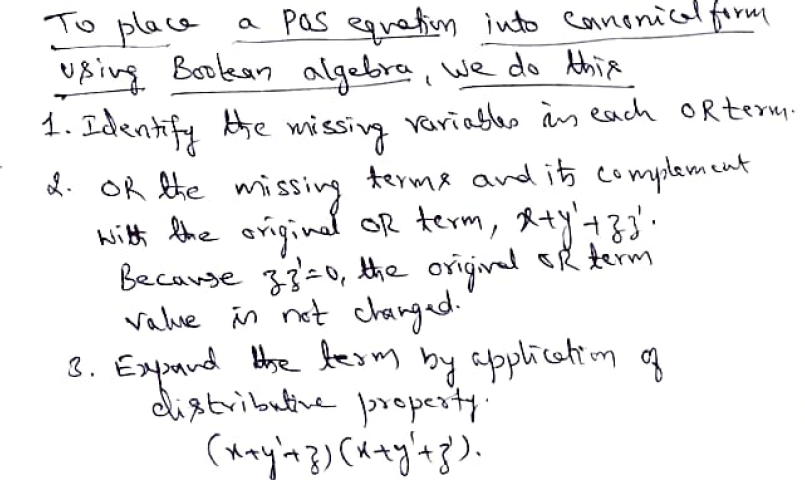 To place a POS equation into canonical form
using Boolean algebra, we do this
1. Identify the missing variables in each OR term.
2. OR the missing terms and its complement
with the original OR term, x+y'+zz'.
Because zz'=0, the original OR term
value is not changed.
3. Expand the term by application of
distributive property.
(x+y'+z)(x+y'+z').